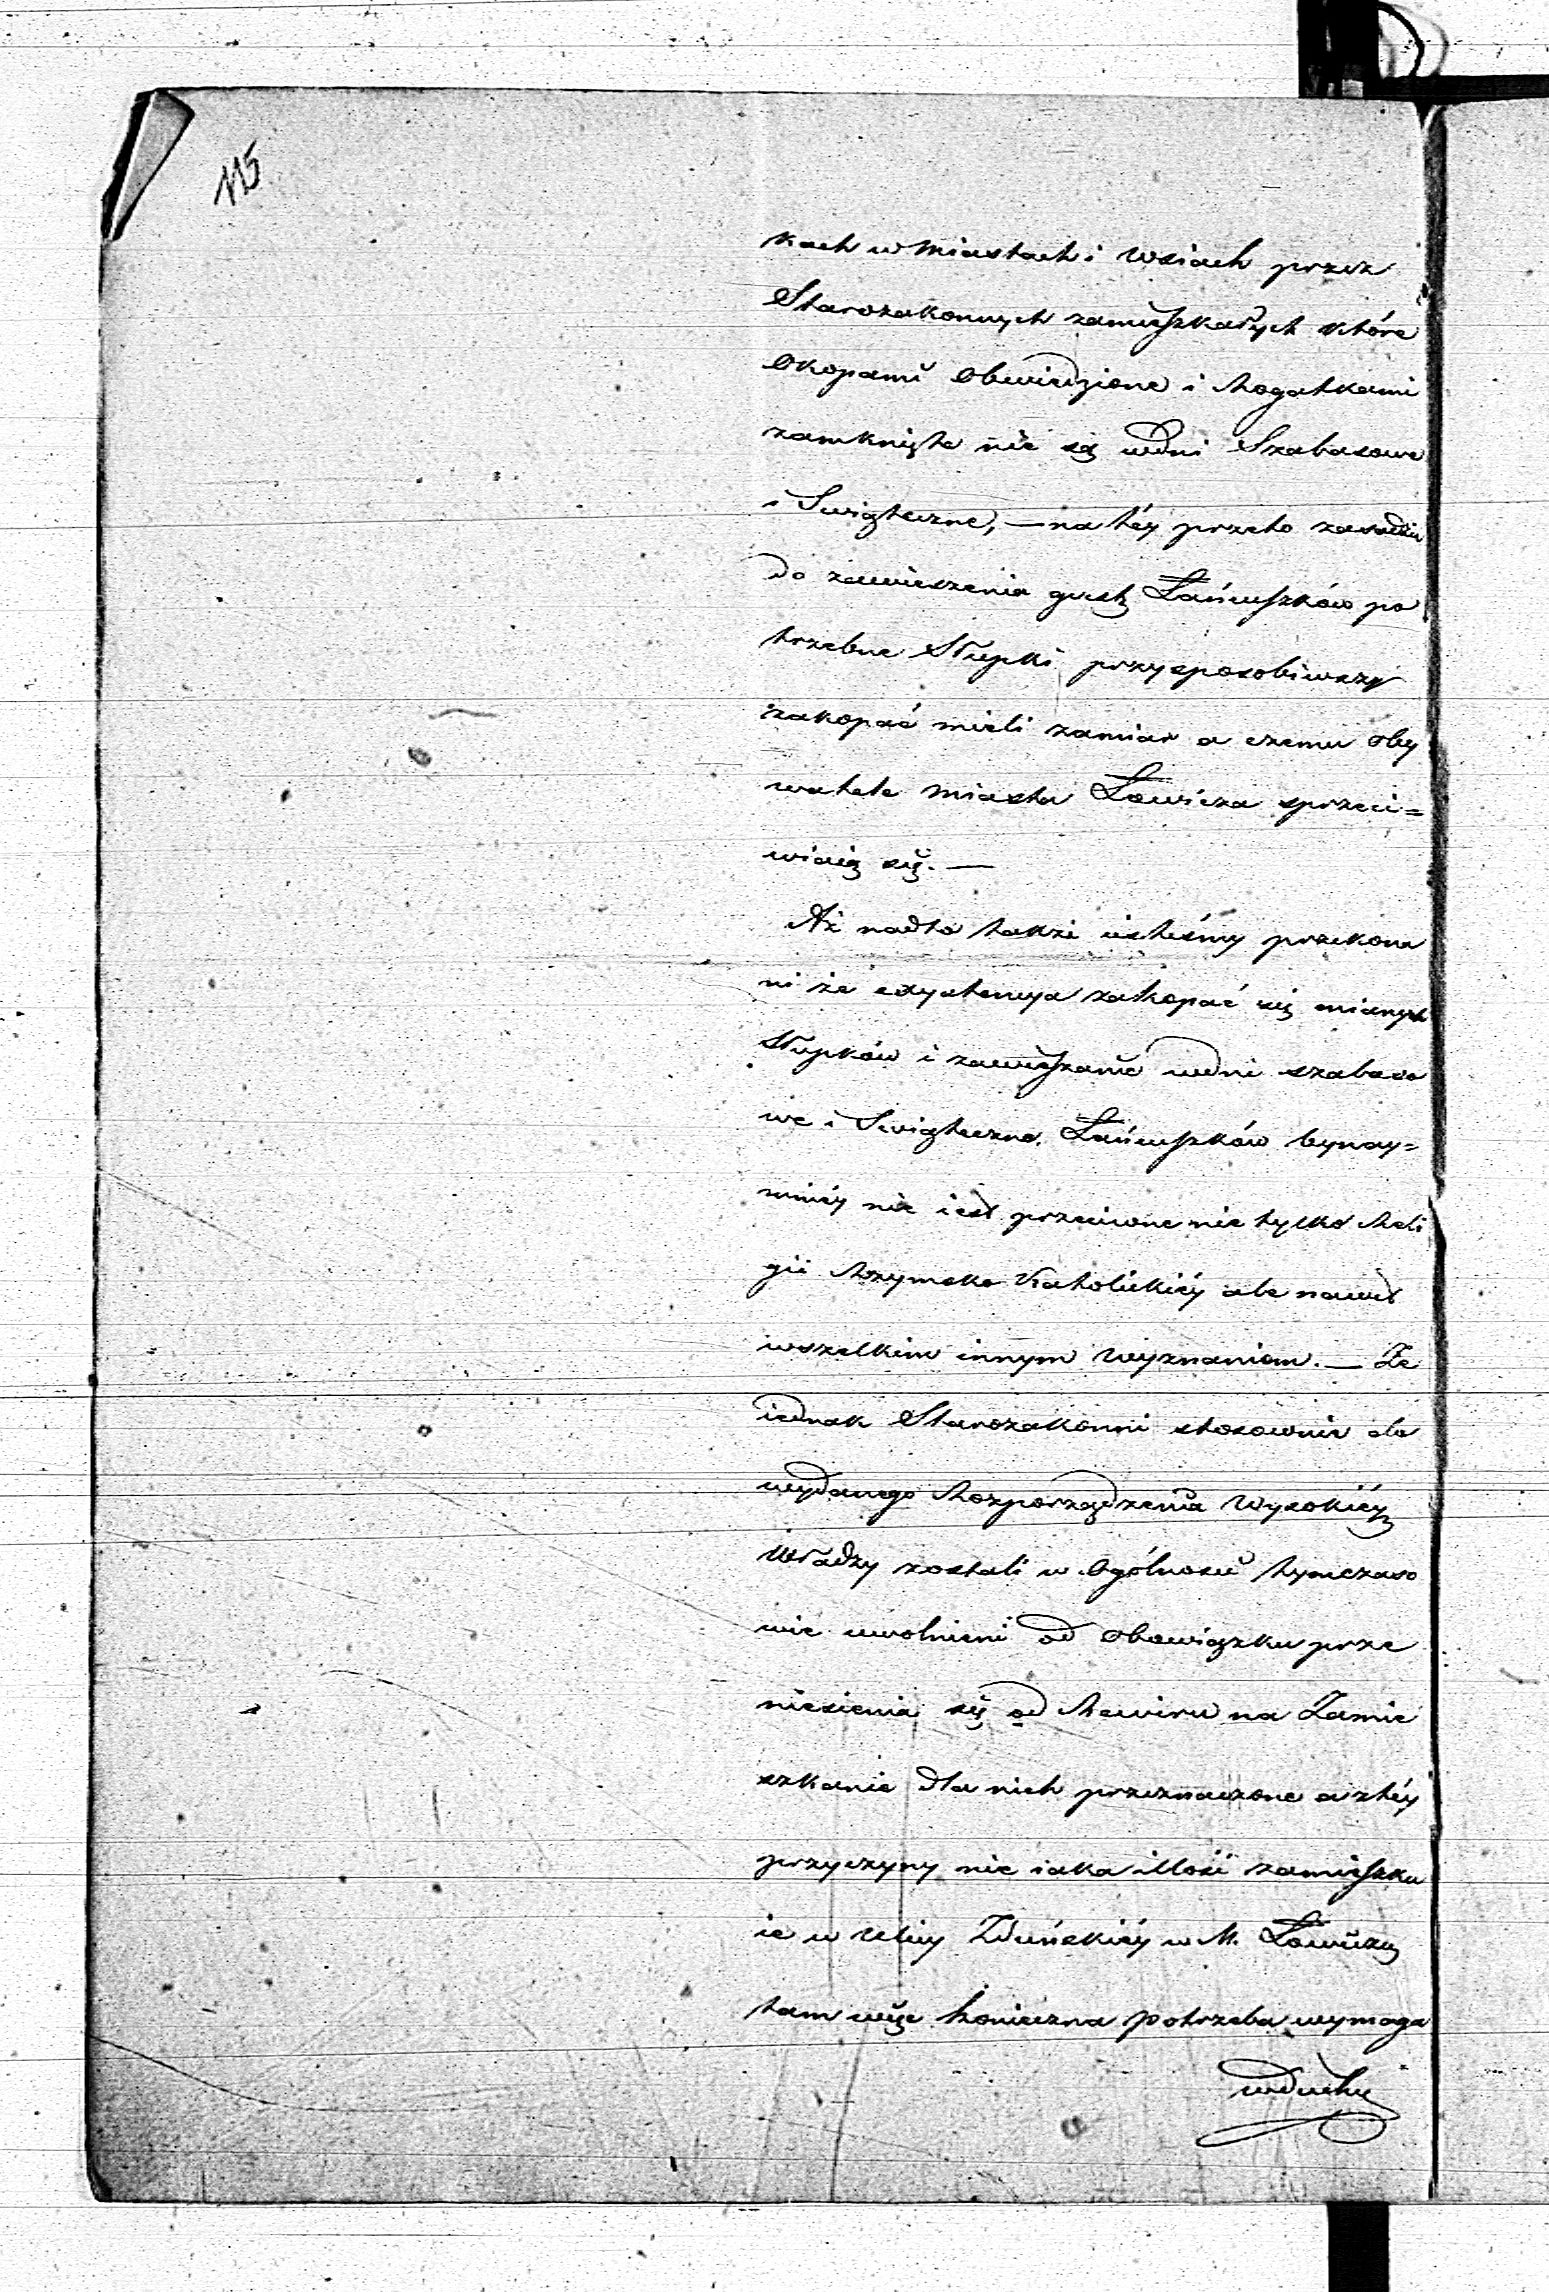 115
kach w Miastach i Wsiach przez
Starozakonnych zamieszkałych które
Okopami Obwiedzione i Rogatkami
zamknięte nie są w dni Szabasowe
i Swiąteczne, — na téy przeto zasadzie
do zawieszenia Łańcuszków po
trzebne Słupki przysposobiwszy
zakopać mieli zamiar a czemu oby
watele Miasta Łowicza sprzeci=
wiaią się. —
Aż nadto także iesteśmy przekona
ni że exystencya zakopać się mianych
Słupków i zawieszanie w dni szabaso
we i Swiąteczne Łańcuszków bynay=
mniéy nie iest przeciwne nie tylko Reli
gii Rzymsko Katolickiéy ale nawet
wszelkim innym Wyznaniom. — Że
iednak Starozakonni stosownie do
wydanego Rozporządzenia Wysokiéy
Władzy zostali w Ogólności tymczaso
wie uwolnieni od Obowiązku prze
niesienia się od Rewiru na Zamie
szkanie dla nich przeznaczone a z téy
przyczyny nie iaka illość zamieszku
ie w Ulicy Zduńskiéy w M. Łowiczu
tam więc konieczna potrzeba wymaga